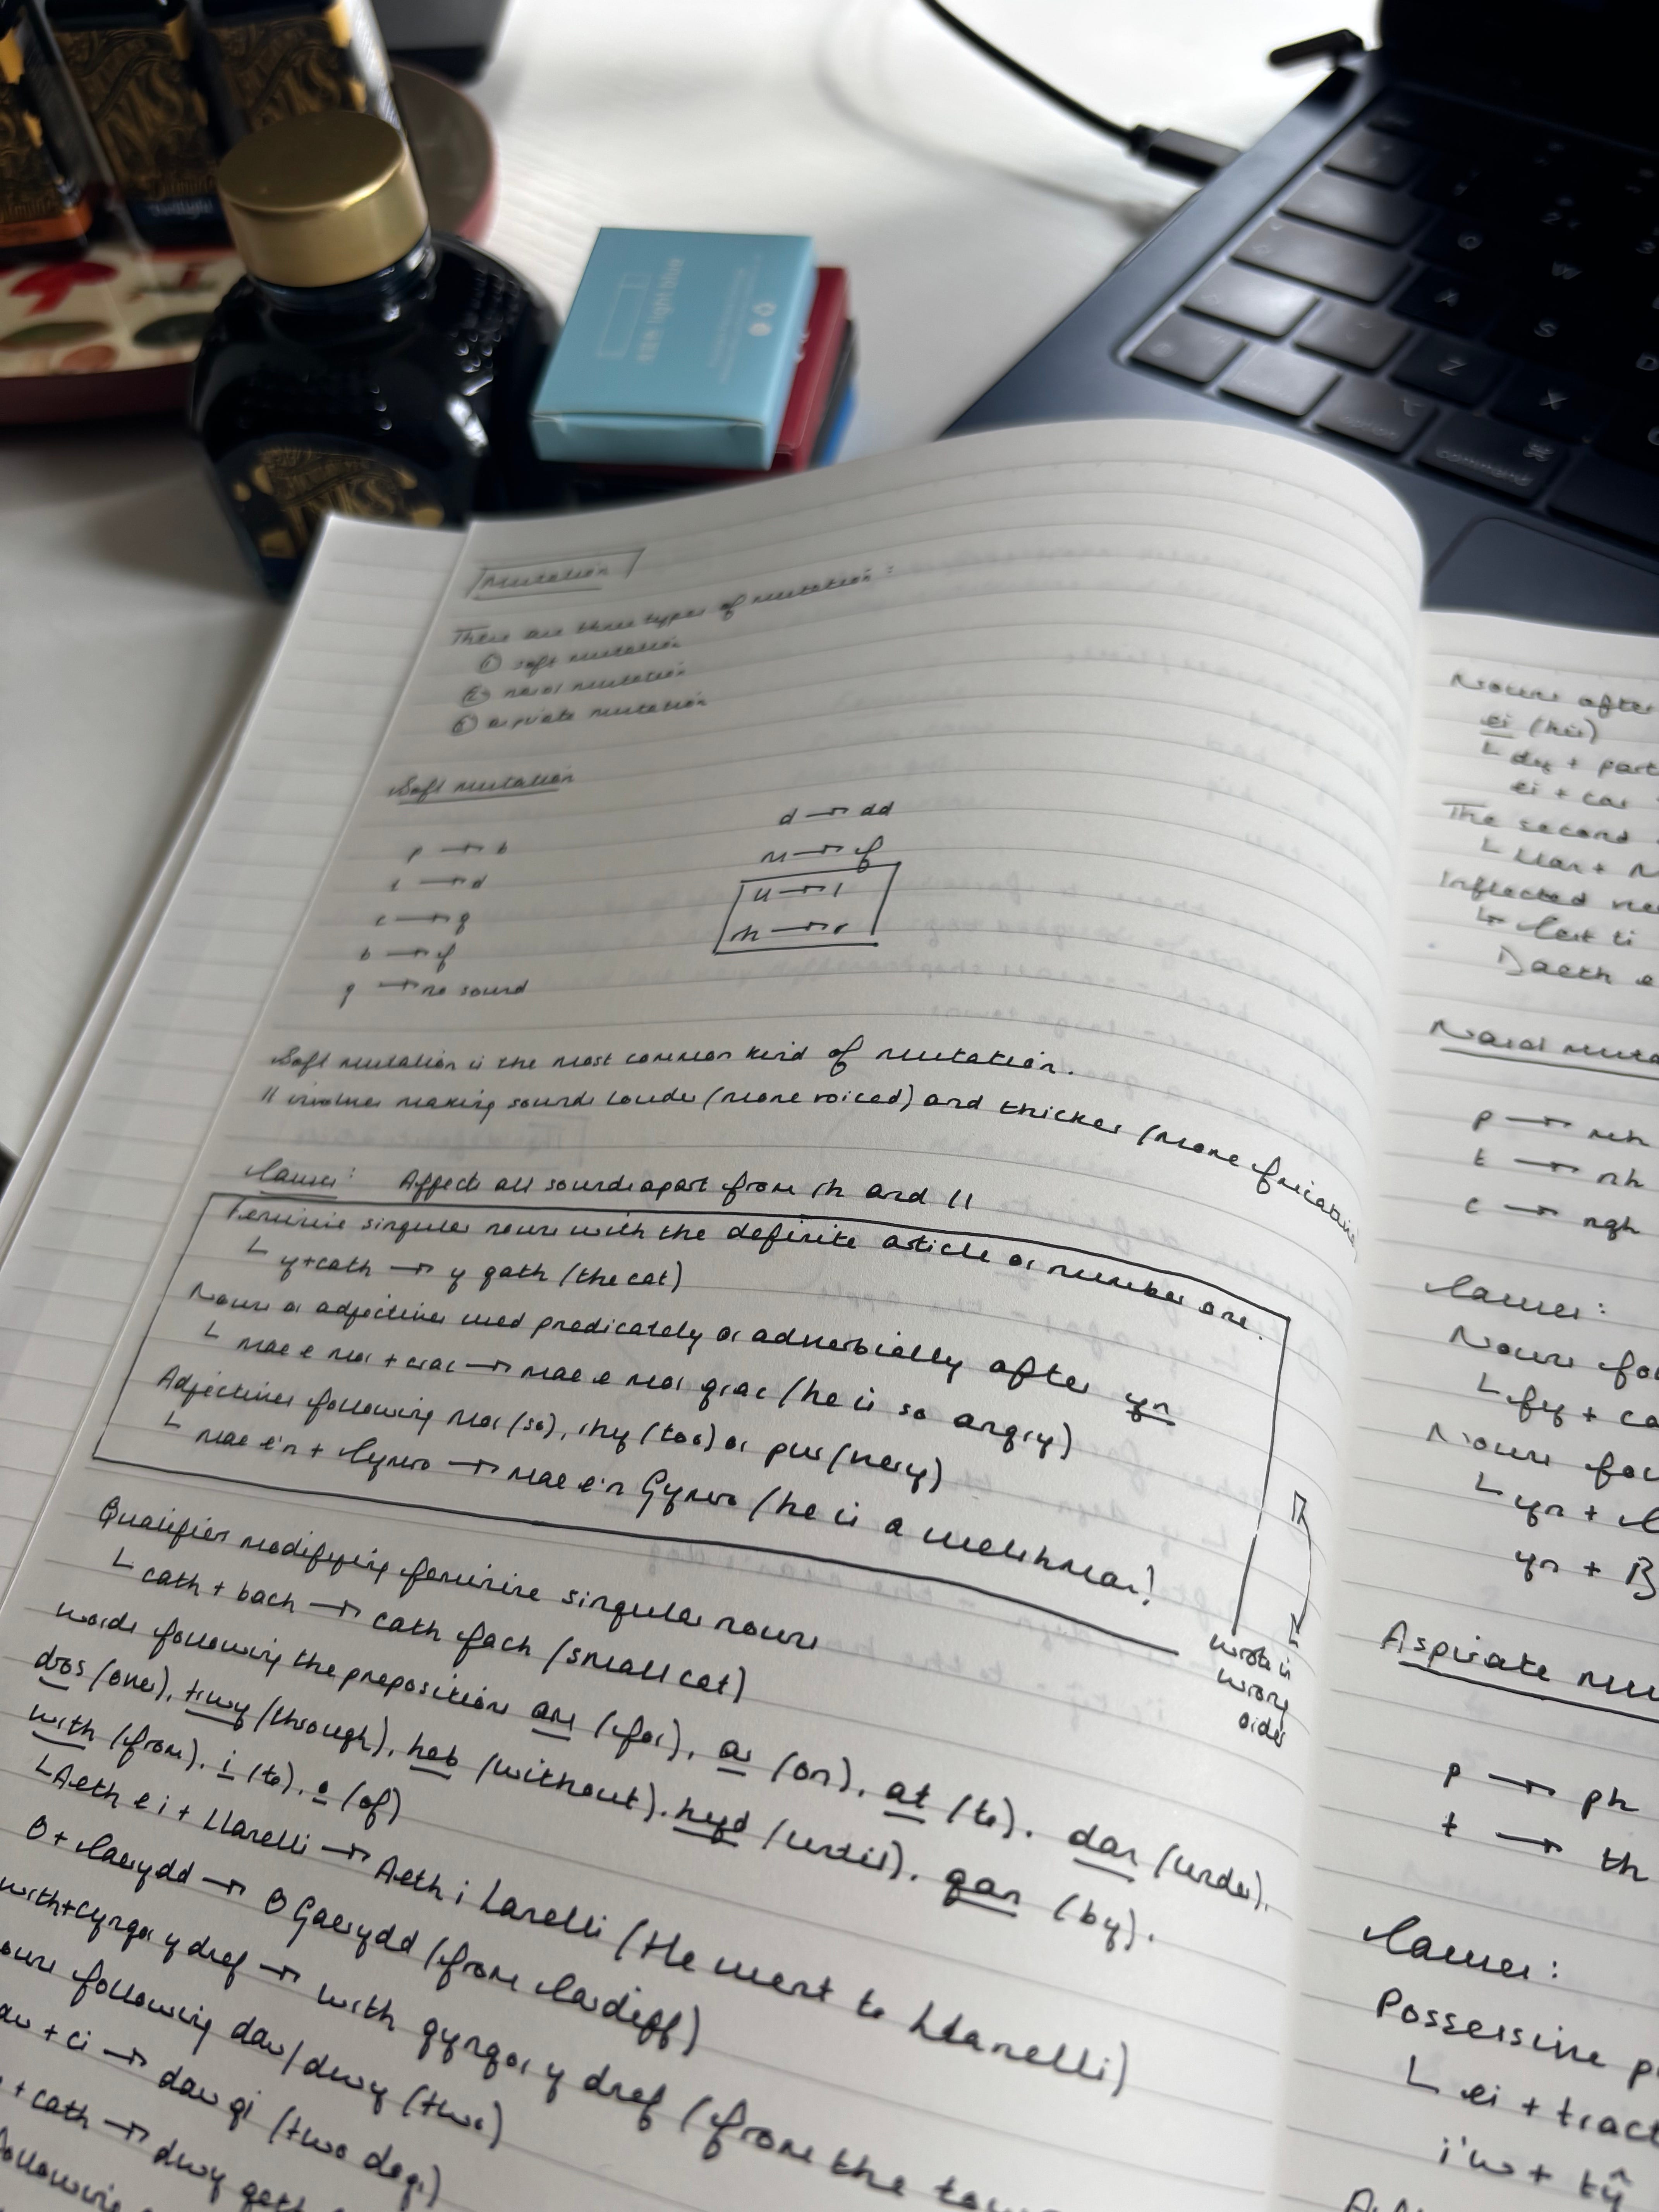 INKS
INKS
eze light blue
INKS
option
command
⌘
Q
W
A
S
D
Z
X
Mutation
There are three types of mutation:
① soft mutation
② nasal mutation
③ aspirate mutation
Soft mutation
p → b
t → d
c → g
b → f
g → no sound
d → dd
m → f
ll → l
rh → r
Soft mutation is the most common kind of mutation.
It involves making sounds louder (more voiced) and thicker (more fricative)
Causes: Affects all sounds apart from rh and ll
Feminine singular nouns with the definite article or number one.
↳ y+cath → y gath (the cat)
Nouns or adjectives used predicately or adverbially after yn
↳ mae e mor + crac → mae e mor grac (he is so angry)
Adjectives following mor (so), rhy (too) or pur (very)
↳ mae e'n + Cymro → mae e'n Gymro (he is a welshman!)
wrote in
wrong
order
Qualifiers modifying feminine singular nouns
↳ cath + bach → cath fach (small cat)
words following the preposition am (for), ar (on), at (to), dan (under),
dros (over), trwy (through), heb (without), hyd (until), gan (by).
with (from), i (to), o (of)
↳ Aeth e i + Llanelli → Aeth i Lanelli (He went to Llanelli)
O + Caerydd → O Gaerydd (from Cardiff)
with+cyngor y dref → with gyngor y dref (from the town
following dau/dwy (two)
+ ci → dau gi (two dogs)
+ cath → dwy gath
following
Nouns after
ei (his)
↳ dy + part
ei + car
The second
↳ Llan + M
Inflected
Daeth e
Nasal muta
p → mh
t → nh
c → ngh
Causes:
Nouns fol
↳ fy + ca
Nouns fol
↳ yn + C
yn + B
Aspirate mu
p → ph
t → th
Causes:
Possessive p
↳ ei + tract
i'w + tŷ